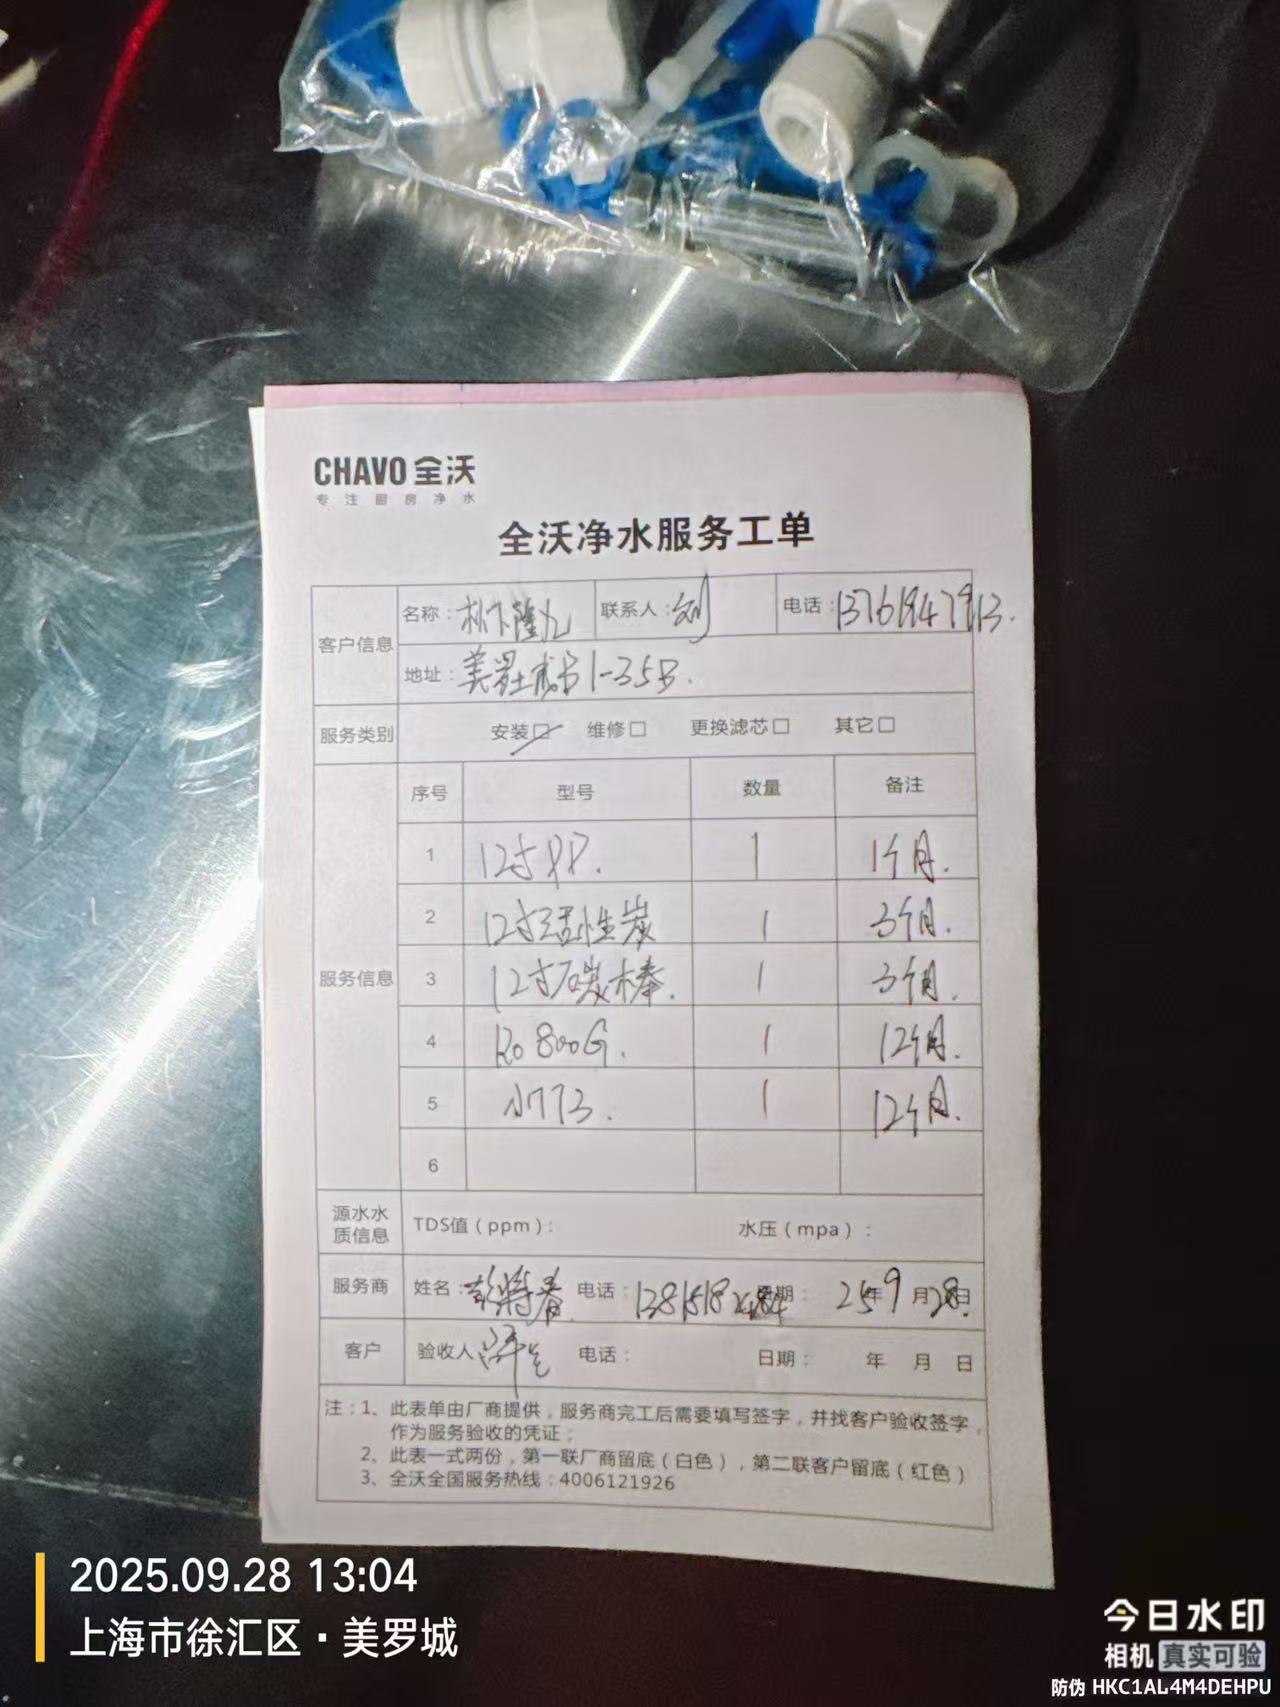 CHAVO 全沃
专注厨房净水
全沃净水服务工单
客户信息 名称：松下隆九 联系人：刘 电话：13761947913.
地址：美罗城 1-35B.
服务类别 安装☑ 维修□ 更换滤芯□ 其它□
服务信息 序号 型号 数量 备注
1 12寸PP. 1 1个月.
2 12寸活性炭 1 3个月.
3 12寸碳棒. 1 3个月.
4 Ro 800G. 1 12个月.
5 小T33. 1 12个月.
6
源水水质信息 TDS值（ppm）： 水压（mpa）：
服务商 姓名： 电话： 日期： 25年9月28日
客户 验收人 电话： 日期： 年 月 日
注：1、此表单由厂商提供，服务商完工后需要填写签字，并找客户验收签字，
作为服务验收的凭证；
2、此表一式两份，第一联厂商留底（白色），第二联客户留底（红色）
3、全沃全国服务热线：4006121926
2025.09.28 13:04
上海市徐汇区·美罗城
今日水印
相机 真实可验
防伪 HKC1AL4M4DEHPU